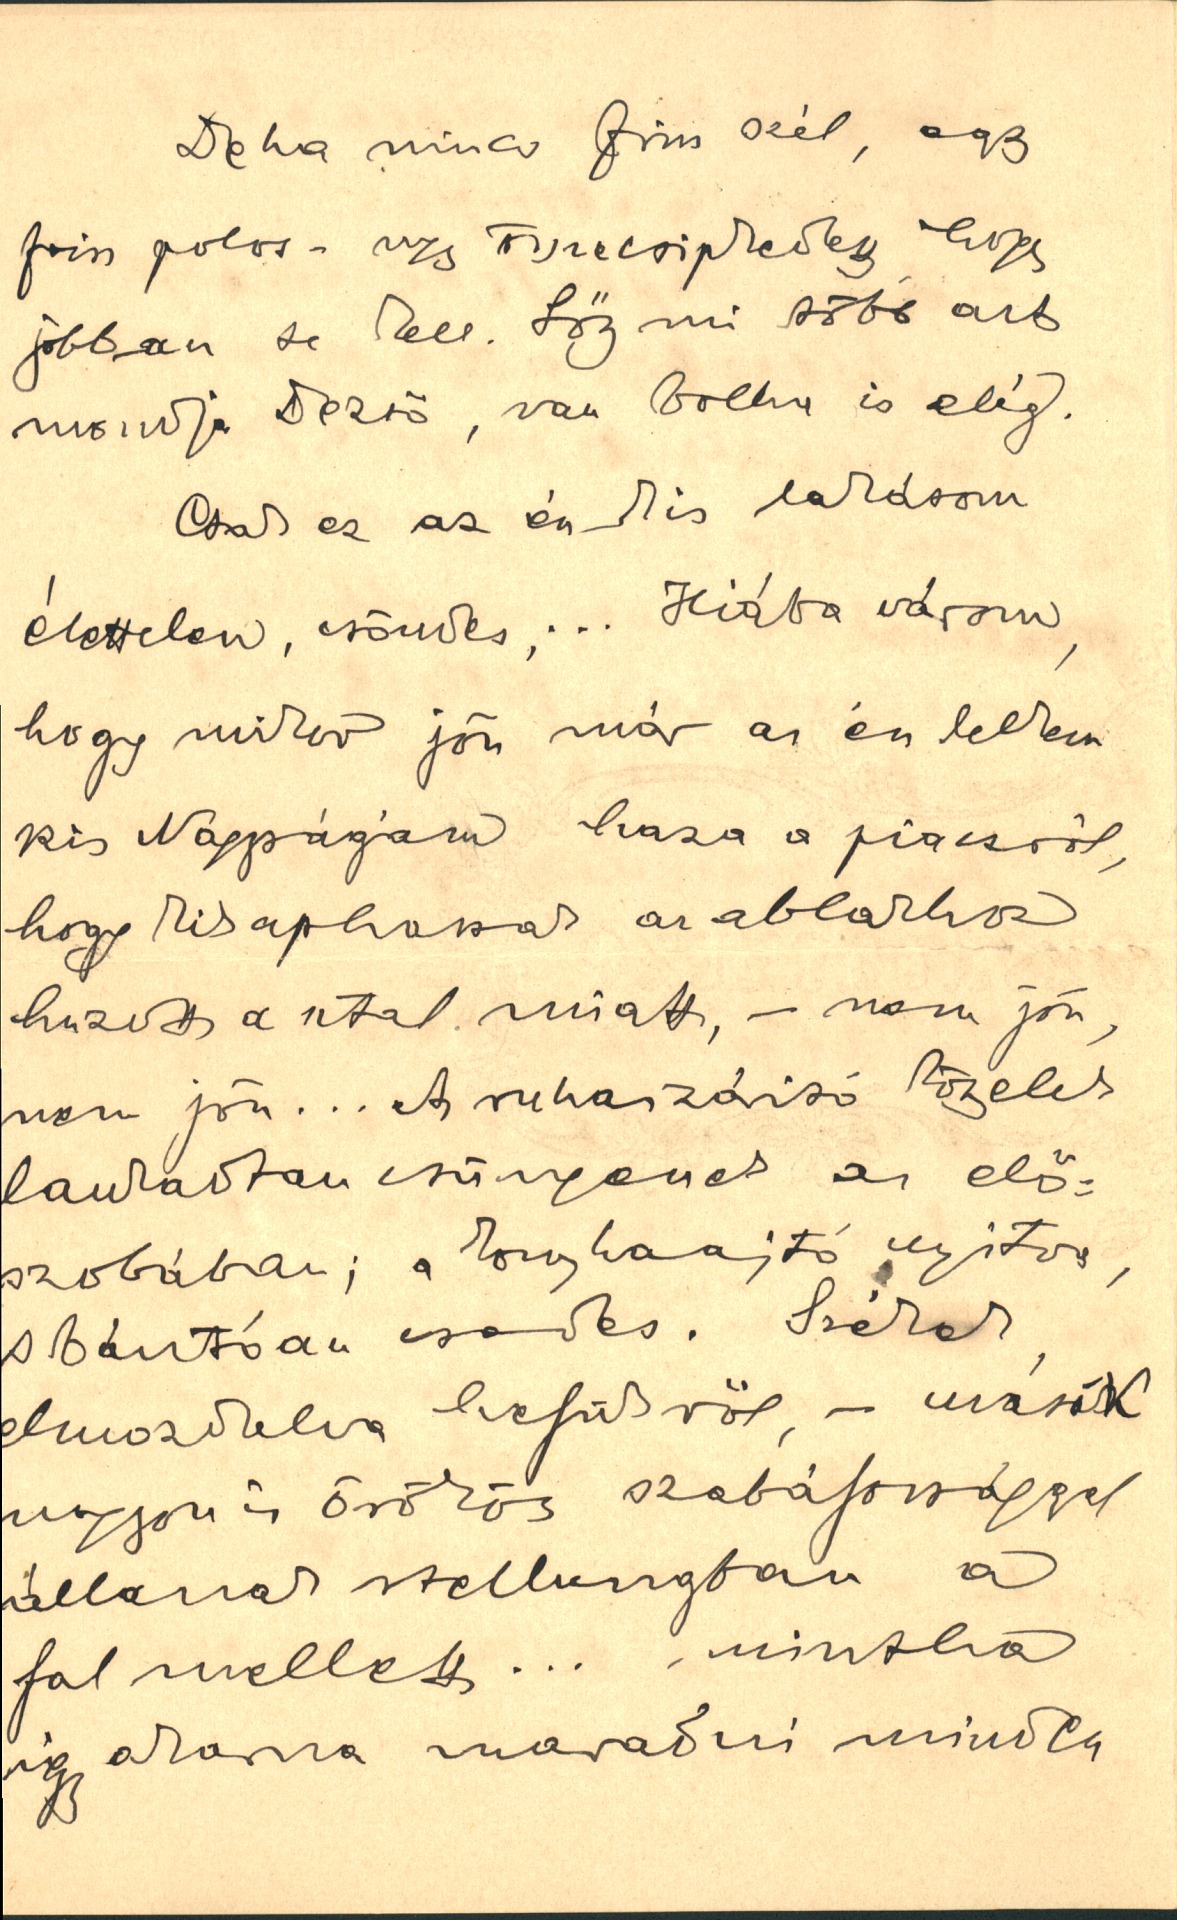 De ha nincs friss szél, egy
friss polos - ugy összecsipkedez hogy
jobban se kell. Söt mi több azt
mondja Dezsö, van bolha is elég.
Csak ez az én kis lakásom
élettelen, csöndes,... Hiába várom,
hogy mikor jön már az én lelkem
kis Nagyságám haza a piaczról,
hogy kikaphassak az ablakhoz
huzott asztal miatt, – nem jön,
nem jön... A ruhaszáritó kötelek
lankadtan csüngenek az elö=
szobában; a konyhaajtó nyitva,
s bántóan csendes. Székek,
elmozdulva helyükröl, – mások
nagyon is örökös szabályossággal
állanak stellungban a
fal mellett... mintha
igy akarna maradni minden